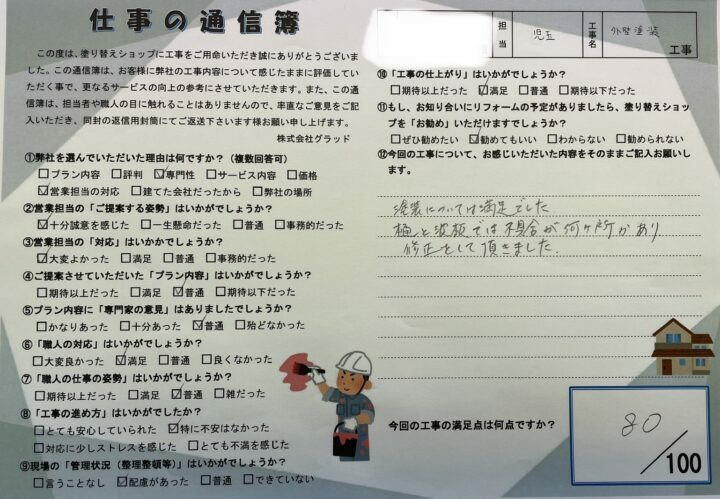 仕事の通信簿
この度は、塗り替えショップに工事をご用命いただき誠にありがとうございま
した。この通信簿は、お客様に弊社の工事内容について感じたままに評価してい
ただく事で、更なるサービスの向上の参考にさせていただきます。また、この通
信簿は、担当者や職人の目に触れることはありませんので、率直なご意見をご記
入いただき、同封の返信用封筒にてご返送下さいます様お願い申し上げます。
株式会社グラッド
①弊社を選んでいただいた理由は何ですか?(複数回答可)
□プラン内容 □評判 ☑専門性 □サービス内容 □価格
☑営業担当の対応 □建てた会社だったから □弊社の場所
②営業担当の「ご提案する姿勢」はいかがでしょうか?
☑十分誠意を感じた □一生懸命だった □普通 □事務的だった
③営業担当の「対応」はいかかでしょうか?
☑大変よかった □満足 □普通 □事務的だった
④ご提案させていただいた「プラン内容」はいかがでしょうか?
□期待以上だった □満足 ☑普通 □期待以下だった
⑤プラン内容に「専門家の意見」はありましたでしょうか?
□かなりあった □十分あった ☑普通 □殆どなかった
⑥「職人の対応」はいかがでしょうか?
□大変良かった ☑満足 □普通 □良くなかった
⑦「職人の仕事の姿勢」はいかがでしょうか?
□期待以上だった □満足 ☑普通 □雑だった
⑧「工事の進め方」はいかがでしたか?
□とても安心していられた ☑特に不安はなかった
□対応に少しストレスを感じた □とても不満を感じた
⑨現場の「管理状況(整理整頓等)」はいかがでしょうか?
□言うことなし ☑配慮があった □普通 □できていない
担当 児玉 工事名 外壁塗装 工事
⑩「工事の仕上がり」はいかがでしょうか?
□期待以上だった ☑満足 □普通 □期待以下だった
⑪もし、お知り合いにリフォームの予定がありましたら、塗り替えショッ
プを「お勧め」いただけますでしょうか?
□ぜひ勧めたい ☑勧めてもいい □わからない □勧められない
⑫今回の工事について、お感じいただいた内容をそのままご記入お願いし
ます。
塗装については満足でした
樋と波板では不具合が何ヶ所かあり
修正をして頂きました.
今回の工事の満足点は何点ですか?
80/100